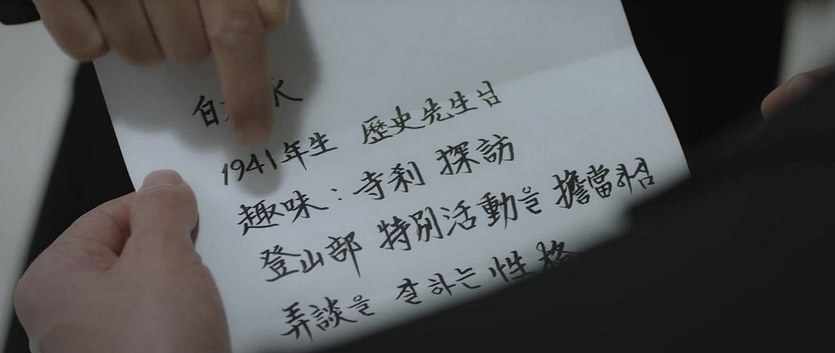 白 水
1941年生 歷史先生님
趣味: 寺刹 探訪
登山部 特別活動을 擔當하심
弄談을 잘하는 性格